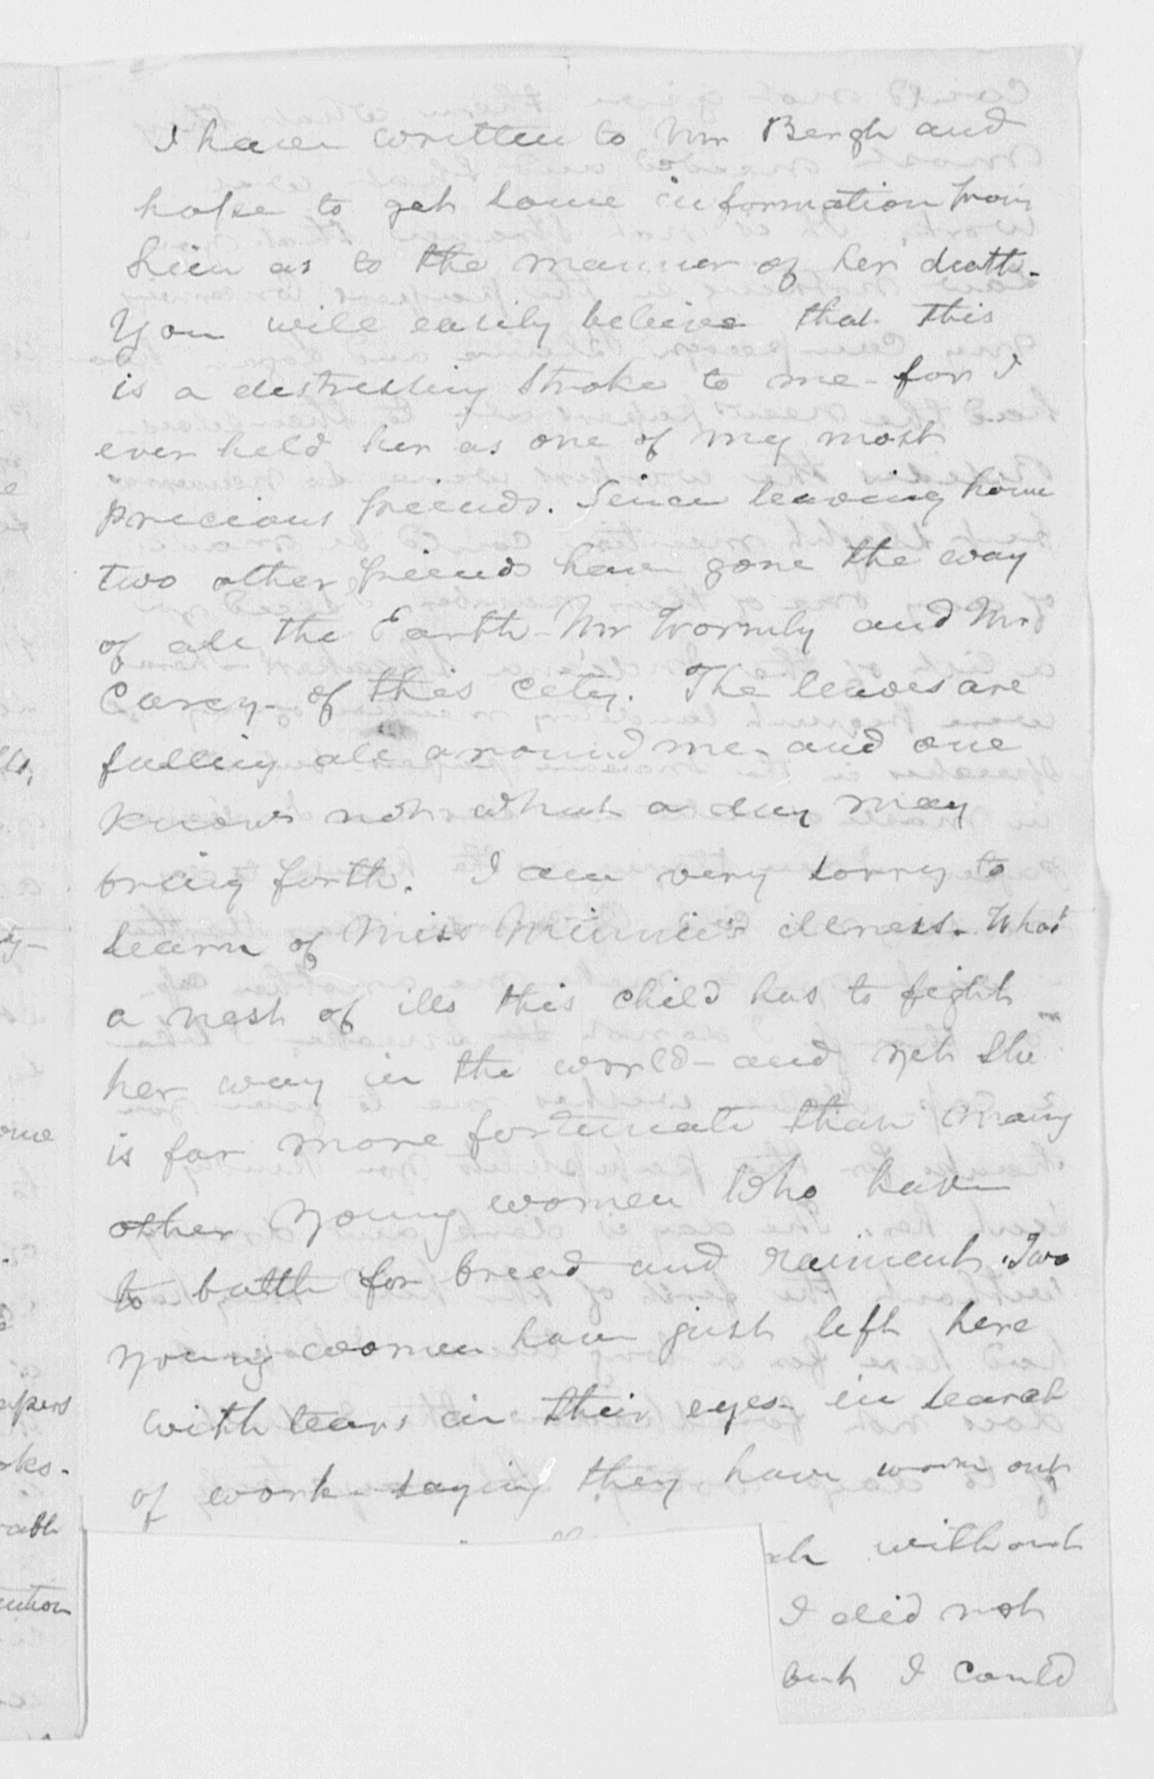 I have written to Mr Bergh and
hope to get some information from
him as to the manner of her death.
You will easily believe that this
is a distressing stroke to me - for I
ever held her as one of my most
precious friends. Since leaving home
two other friends have gone the way
of all the Earth - Mr Wormly and Mr
Carey - of this city. The leaves are
falling all around me - and one
knows not what a day may
bring forth. I am very sorry to
learn of Miss Minnie's illness. What
a nest of ills this child has to fight
her way in the world - and yet she
is far more fortunate than many
other young women who have
to battle for bread and raiment. Two
young women have just left here
with tears in their eyes - in search
of work - saying they have worn out
without
I did not
but I could
apers
rks.